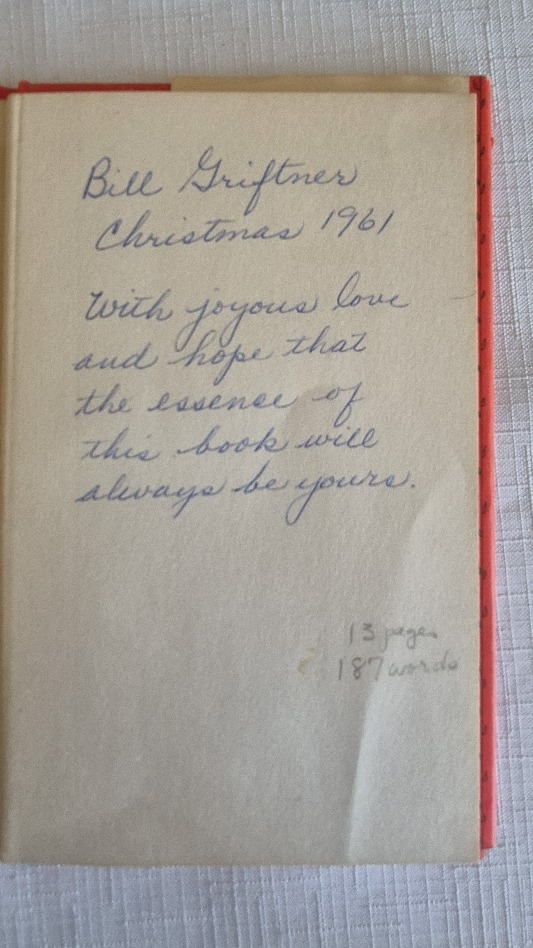 Bill Griftner
Christmas 1961
With joyous love
and hope that
the essence of
this book will
always be yours.
13 pages
187 words